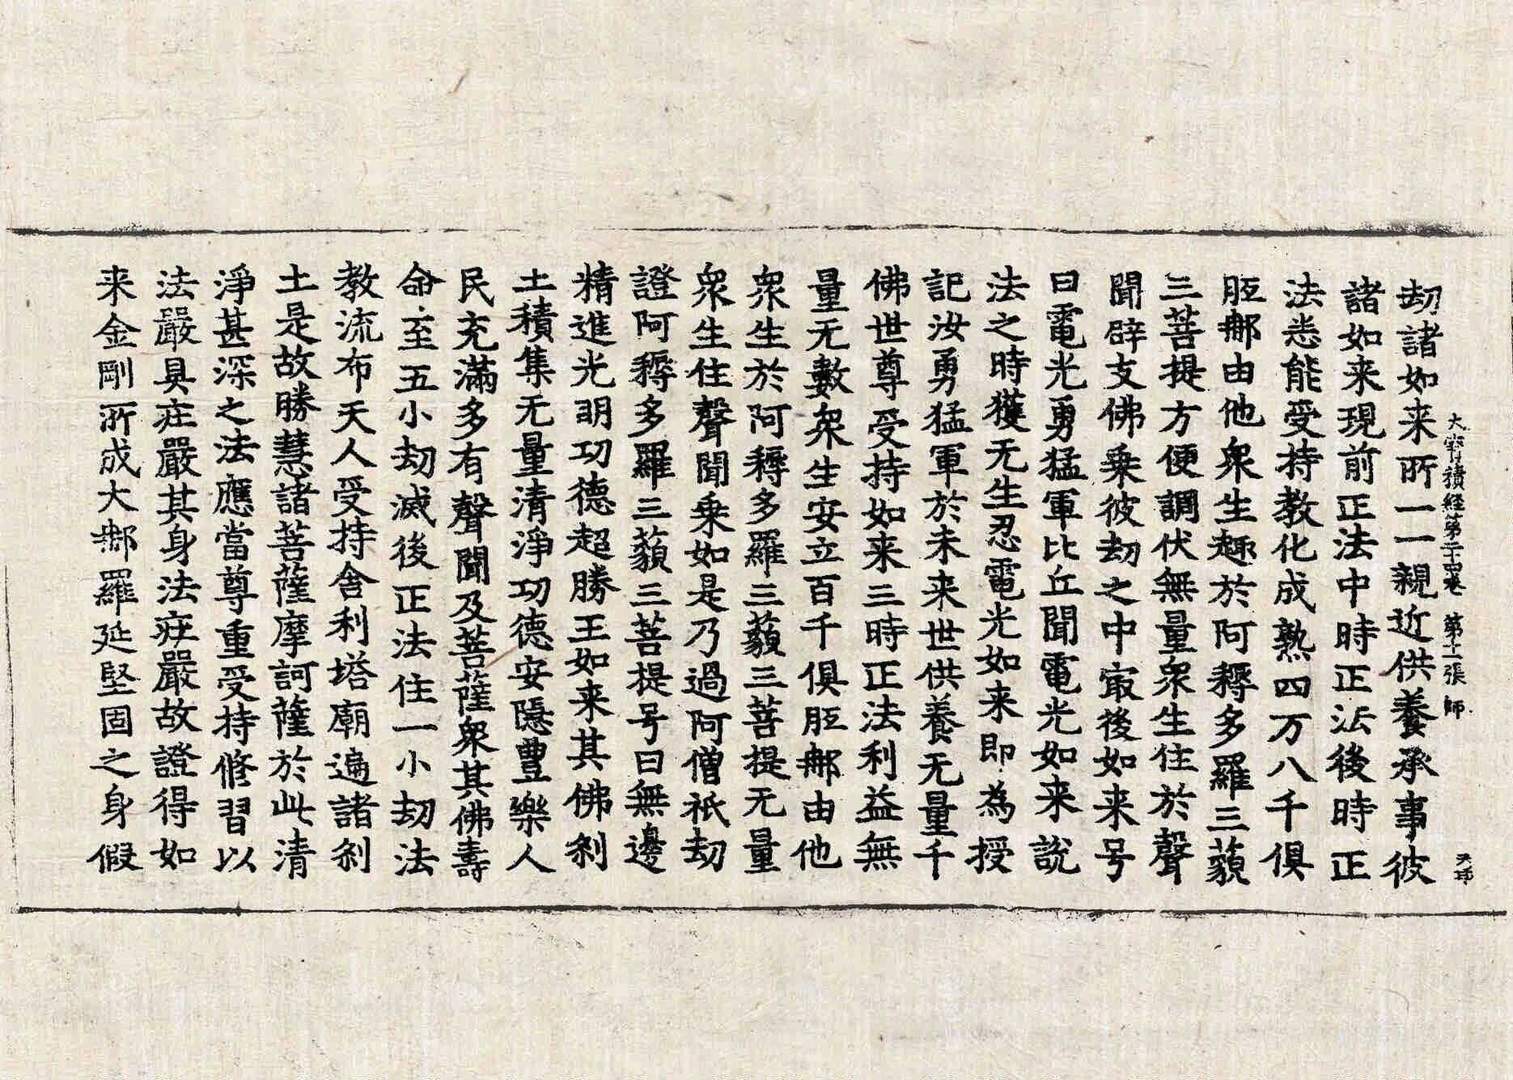 大寳積経第二十四卷 第十一張 師
劫諸如来所一一親近供養承事彼
諸如来現前正法中時正法後時正
法悉能受持教化成熟四万八千俱
胝那由他衆生趣於阿耨多羅三藐
三菩提方便調伏無量衆生住於聲
聞辟支佛乗彼劫之中㝡後如来号
曰電光勇猛軍比丘聞電光如来説
法之時獲无生忍電光如来即為授
記汝勇猛軍於未来世供養无量千
佛世尊受持如来三時正法利益無
量无數衆生安立百千俱胝那由他
衆生於阿耨多羅三藐三菩提无量
衆生住聲聞乗如是乃過阿僧祇劫
證阿耨多羅三藐三菩提号曰無邊
精進光明功德超勝王如来其佛刹
土積集无量清淨功德安隠豊樂人
民充滿多有聲聞及菩薩衆其佛壽
命至五小劫滅後正法住一小劫法
教流布天人受持舎利塔廟遍諸刹
土是故勝慧諸菩薩摩訶薩於此清
淨甚深之法應當尊重受持修習以
法嚴具莊嚴其身法莊嚴故證得如
来金剛所成大那羅延堅固之身假